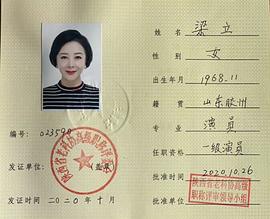 姓名 梁立
性别 女
出生年月 1968.11
籍贯 山东胶州
专业 演员
任职资格 一级演员
批准时间 2020.10.26
批准单位：
陕西省老科协高级
职称评审领导小组
编号：
发证单位： （盖章）
陕西省老科协高级职称评
发证时间：二〇二〇年十月